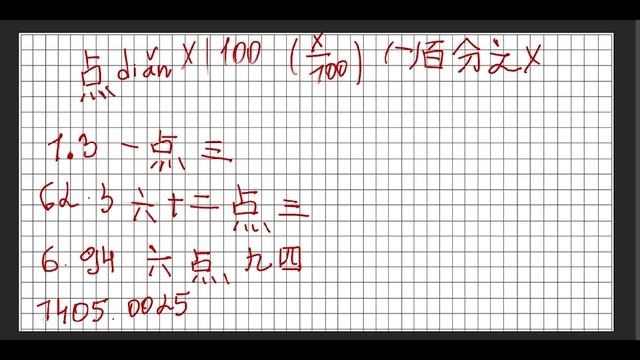 点 diǎn x | 100 (x/100) (一)百分之 x
1.3 一点三
62.3 六十二点三
6.94 六点九四
7405.0025